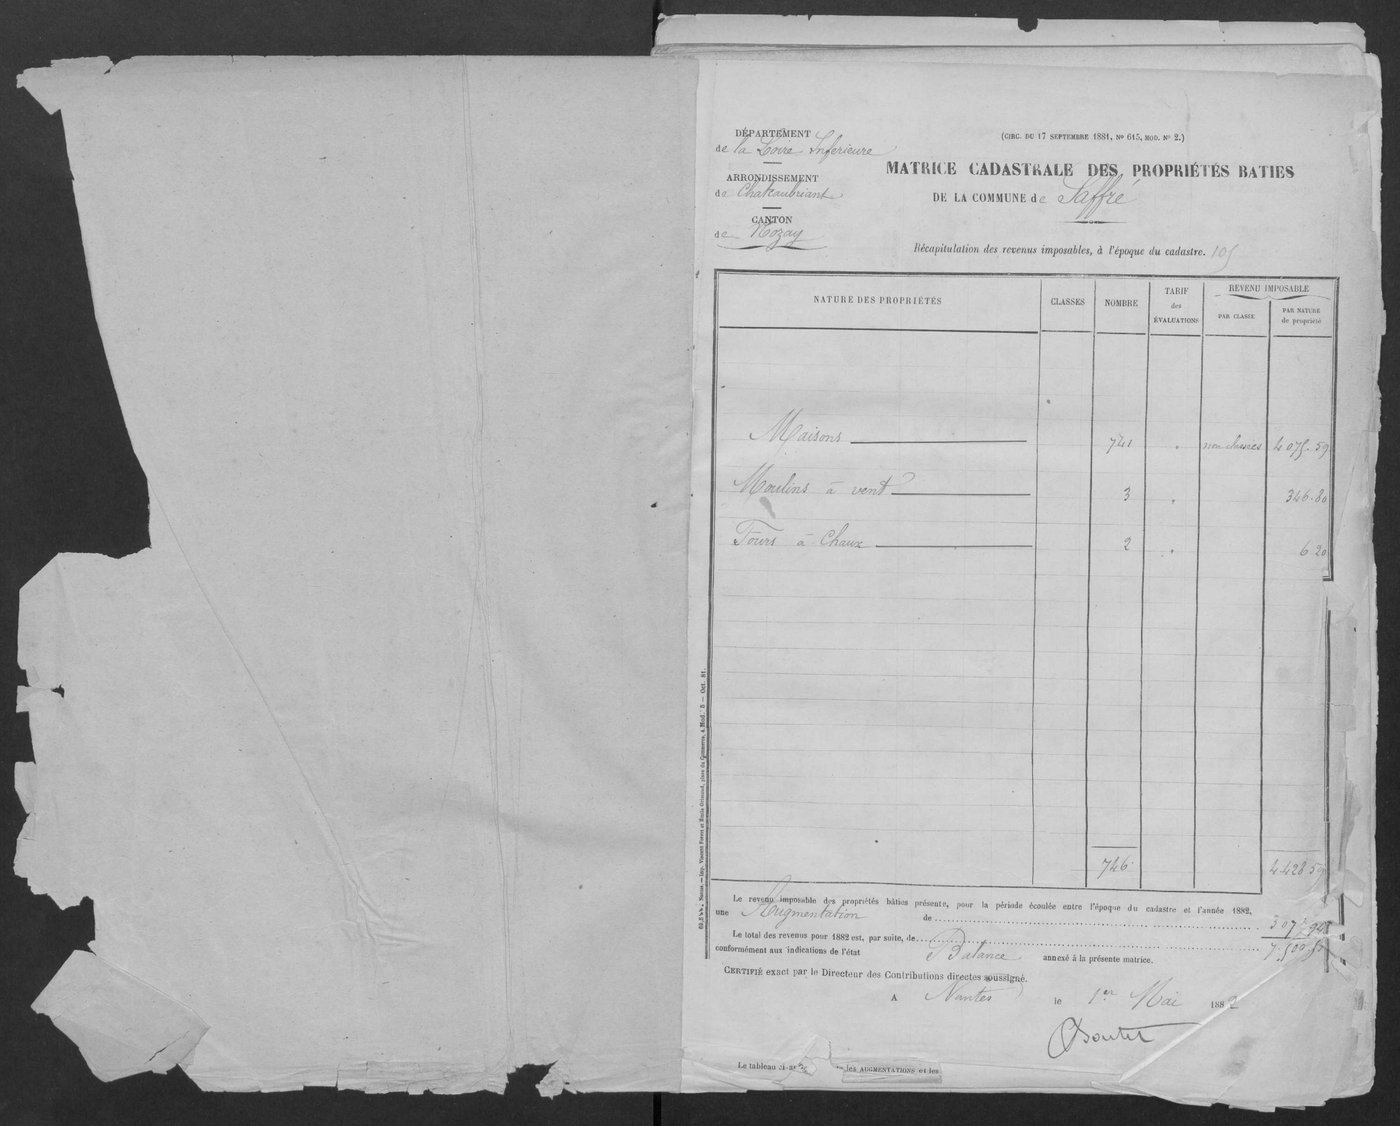 DÉPARTEMENT
de la Loire Inférieure
ARRONDISSEMENT
de Chateaubriant
CANTON
de Nozay
(CIRC. DU 17 SEPTEMBRE 1881, No 615, MOD. No 2.)
MATRICE CADASTRALE DES PROPRIÉTÉS BATIES
DE LA COMMUNE de Saffré
Récapitulation des revenus imposables, à l'époque du cadastre.
NATURE DES PROPRIÉTÉS
CLASSES
NOMBRE
TARIF
des
ÉVALUATIONS
REVENU IMPOSABLE
PAR CLASSE
PAR NATURE
de propriété
Maisons 741 4075.59
Moulins à vent 3 346.80
Fours à Chaux 2 6 20
746 4428 59
Le revenu imposable des propriétés bâties présente, pour la période écoulée entre l'époque du cadastre et l'année 1882,
une Augmentation de
Le total des revenus pour 1882 est, par suite, de
conformément aux indications de l'état Balance annexé à la présente matrice.
CERTIFIÉ exact par le Directeur des Contributions directes soussigné.
A Nantes le 1er Mai 1882
Le tableau ci-
les AUGMENTATIONS et les
Nantes. — Imp. Vincent Forest et Émile Grimaud, place du Commerce, 4. Mod. 5 — Oct. 81.